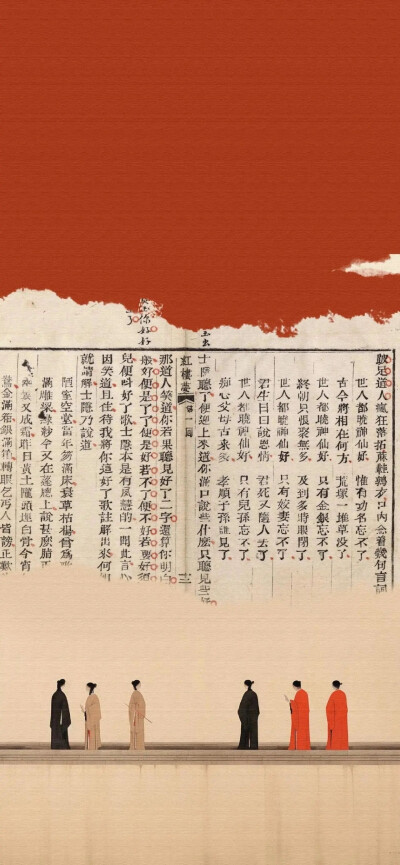 足道人瘋狂落拓麻鞋鶉衣口內念着幾句言詞
世人都曉神仙好 惟有功名忘不了
古今將相在何方 荒塚一堆草沒了
世人都曉神仙好 只有金銀忘不了
終朝只恨聚無多 及到多時眼閉了
世人都曉神仙好 只有姣妻忘不了
君生日日說恩情 君死又隨人去了
世人都曉神仙好 只有兒孫忘不了
痴心父母古來多 孝順子孫誰見了
士隱聽了便迎上來道你滿口說些什麽只聽見些好
紅樓夢 第一回 三
那道人笑道你若果聽見好了二字還算你明白
般好便是了了便是好若不了便不好若要好須
兒便叫好了歌士隱本是有夙慧的一聞此言心
因笑道且住待我將你這好了歌註解出來何如
就請解士隱乃說道
陋室空堂當年笏滿床衰草枯楊曾爲
滿雕梁綠紗今又在蓬牕上說甚麽脂正
鬢又成霜昨日黃土隴頭埋白骨今宵
金滿箱銀滿箱轉眼乞丐人皆謗正歎